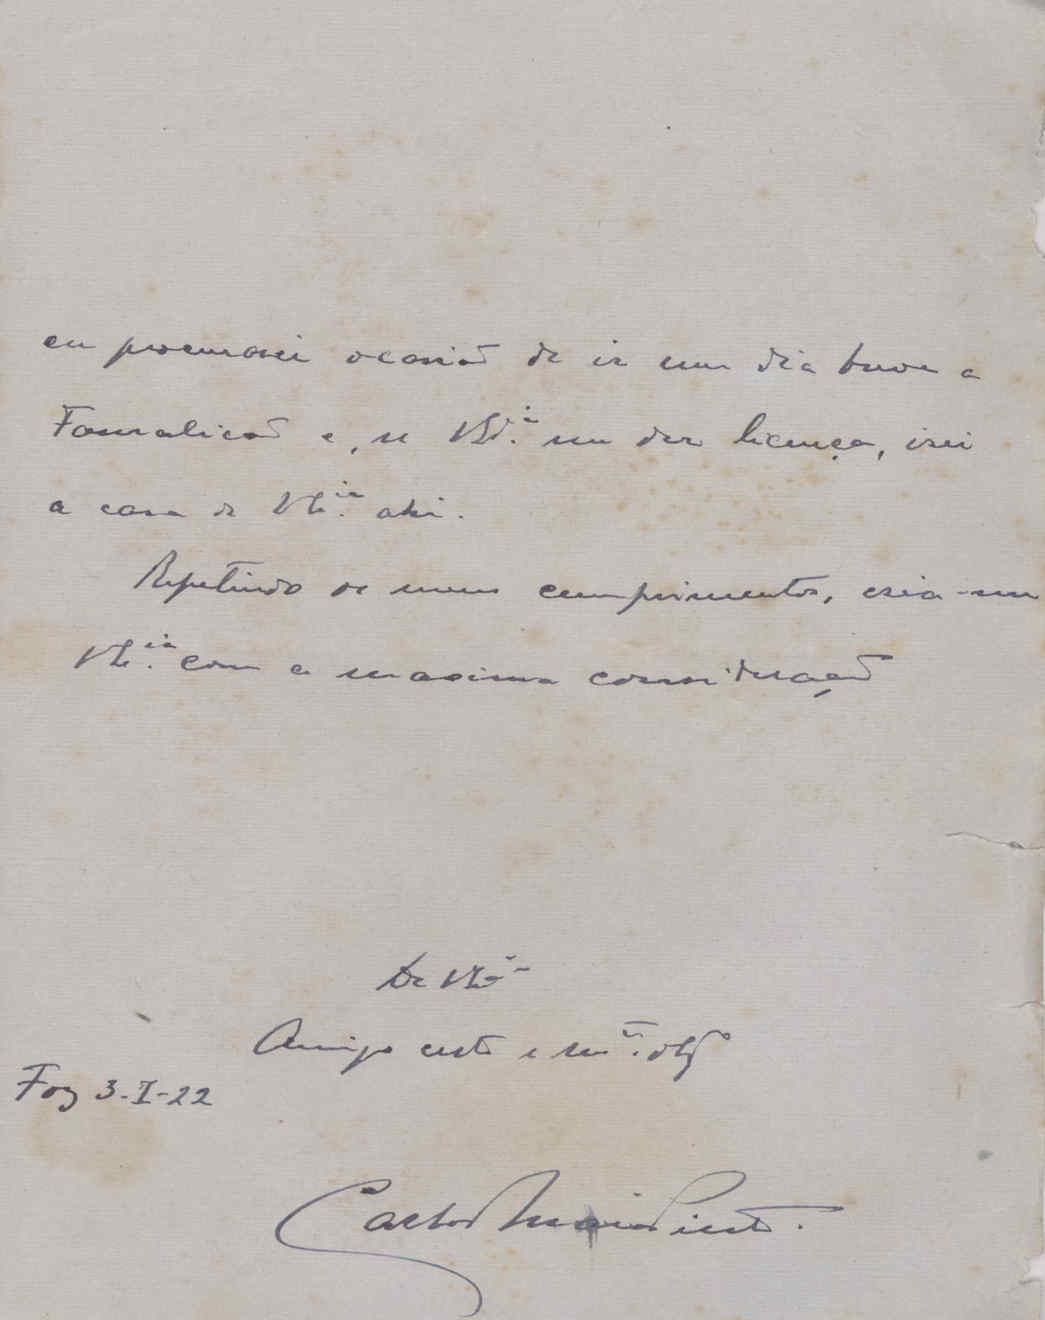 eu procurarei ocasião de ir um dia breve a
Famalicão e, se V. Ex.ia me der licença, irei
a casa de V. Ex.ia ahi.
Repetindo os meus cumprimentos, creia-me
V. Ex.ia com a maxima consideração
De V. Ex.ia
Amigo certo e m.to obg.o
Foz 3-I-22
Carlos Maia Pinto.